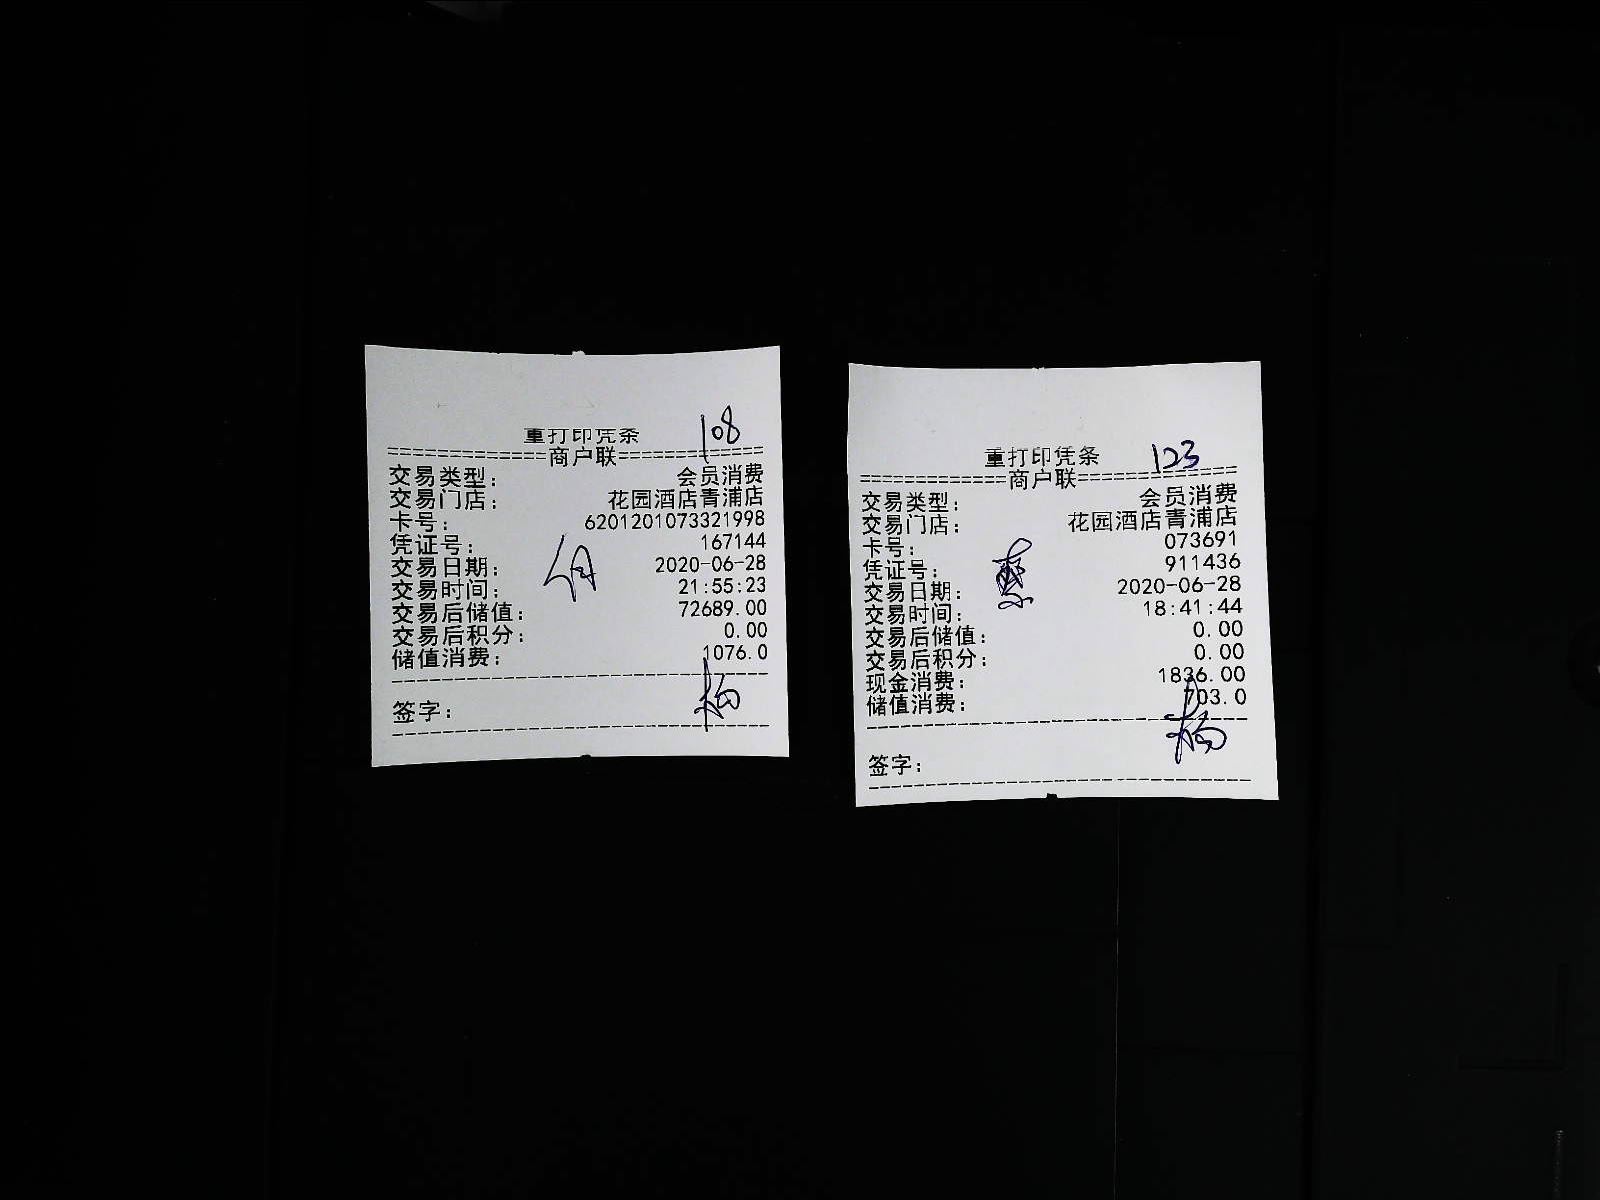 108
重打印凭条
=============商户联============
交易类型： 会员消费
交易门店： 花园酒店青浦店
卡号： 6201201073321998
凭证号： 167144
交易日期： 2020-06-28
交易时间： 21:55:23
交易后储值： 72689.00
交易后积分： 0.00
储值消费： 1076.0
签字：
123
重打印凭条
============商户联=============
交易类型： 会员消费
交易门店： 花园酒店青浦店
卡号： 073691
凭证号： 911436
交易日期： 2020-06-28
交易时间： 18:41:44
交易后储值： 0.00
交易后积分： 0.00
现金消费： 1836.00
储值消费： 703.0
签字：